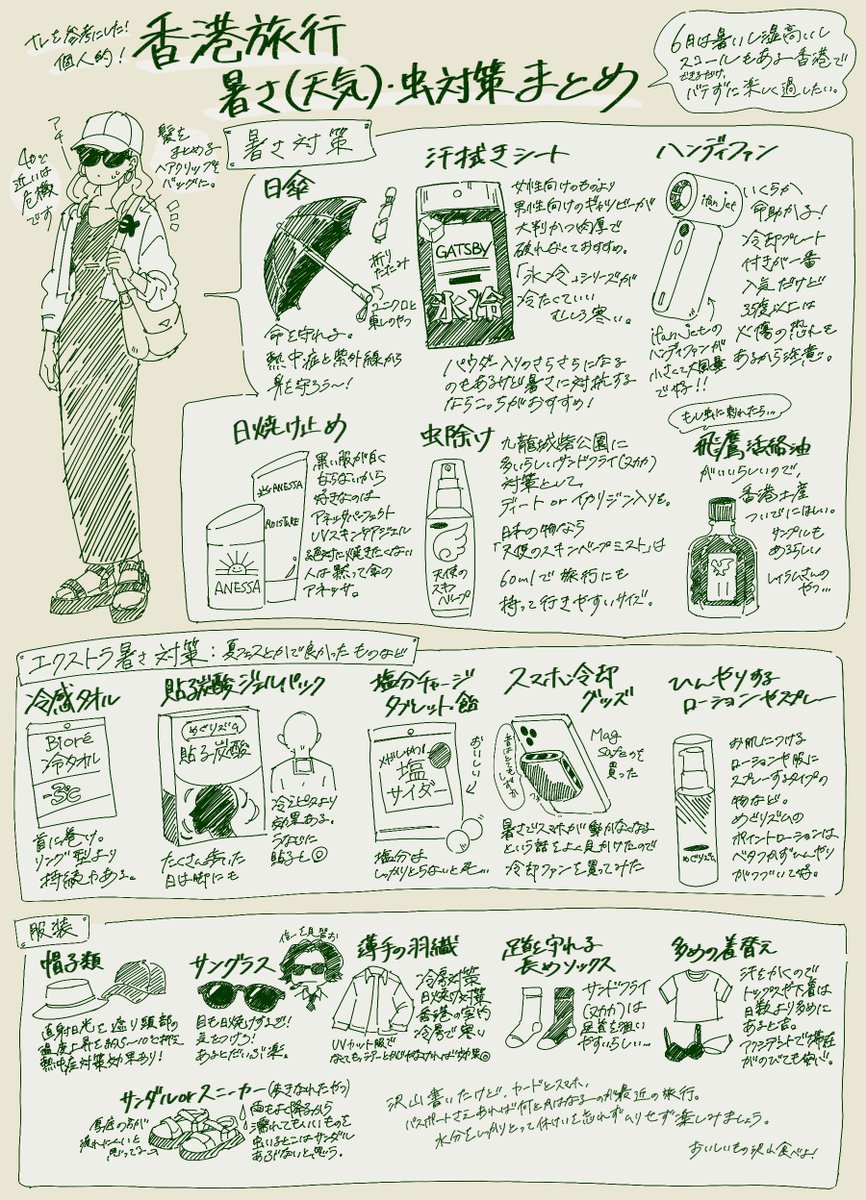 個人的！
香港旅行
暑さ(天気)・虫対策まとめ
6月は暑いし湿高いし
スコールもある香港で
できるだけ、
バテずに楽しく過したい。
アチ
40℃
近いは
危機
です
髪を
まとめる
ヘアクリップを
バッグに。
暑さ対策
日傘
折り
たたみ
ユニクロと
東レのやつ
命を守れる。
熱中症と紫外線から
身を守ろう〜！
汗拭きシート
GATSBY
氷冷
女性向けのものより
男性向けのギャツビーが
大判かつ肉厚で
破れなくておすすめ。
「氷冷」シリーズが
冷たくていい
むしろ寒い。
パウダー入りのさらさらになる
のもあるけど暑さに対抗する
ならこっちがおすすめ！
ハンディファン
ifan jet
いくらか
命助かる！
冷却プレート
付きが一番
人気だけど
35度以上は
火傷の恐れも
あるから注意。
ifan jetの
ハンディファンが
小さくて大風量
で好!!
日焼け止め
ANESSA
MOISTURE
ANESSA
黒い服が白く
ならないから
好きなのは
アネッサパーフェクト
UVスキンケアジェル
絶対に焼きたくない
人は黙って金の
アネッサ。
虫除け
天使の
スキン
ベープ
九龍城砦公園に
多いらしいサンドフライ(ヌカカ)
対策として、
ディート or イカリジン入りを。
日本の物なら
「天使のスキンベープミスト」は
60mlで旅行にも
持って行きやすいサイズ。
もし虫に刺れたら…
飛鷹活絡油
がいいらしいので、
香港土産
ついでにほしい。
サンプルも
あるらしい
エクストラ暑さ対策：夏フェスとかで良かったものなど
冷感タオル
Bioré
冷タオル
-3℃
首に巻く。
リング型より
持続力ある。
貼る炭酸ジェルパック
めぐリズム
貼る炭酸
冷えピタより
効果ある。
うなじに
貼ると◎
たくさん歩いた
日は脚にも
塩分チャージ
タブレット・飴
塩
サイダー
おいしい
塩分は
しっかりとらないと死…
スマホ冷却
グッズ
Mag
Safeのを
買った
暑さでスマホが動かなくなる
という話をよく見かけたので
冷却ファンを買ってみた
ひんやりする
ローションやスプレー
めぐリズム
お肌につける
ローションや服に
スプレーするタイプの
物など。
めぐリズムの
ポイントローションは
ベタつかずひんやり
がつづいて好。
服装
帽子類
直射日光を遮り頭部の
温度上昇を約5〜10℃抑え
熱中症対策効果あり！
サングラス
目も日焼けするぞ！
気をつけろ！
あるとだいぶ楽。
薄手の羽織
冷房対策
日焼け対策
香港の室内
冷房で寒い
UVカット服で
なくても
足首を守れる
長めソックス
サンドフライ
(ヌカカ)は
足首を狙い
やすいらしい…
多めの着替え
汗をかくので
トップスや下着は
日数より多めに
あると吉。
アクシデントで滞在
がのびても安心。
サンダル or スニーカー(歩きなれたやつ)
厚底の方が
疲れにくいと
思ってる…
雨もよく降るから
濡れてもいいものを
虫いるとこにはサンダル
あぶないと思う。
沢山書いたけど、カードとスマホ、
パスポートさえあれば何とかはなる〜のが最近の旅行。
水分をしっかりとって休けいを忘れずムリせず楽しみましょう。
おいしいもの沢山食べよ！